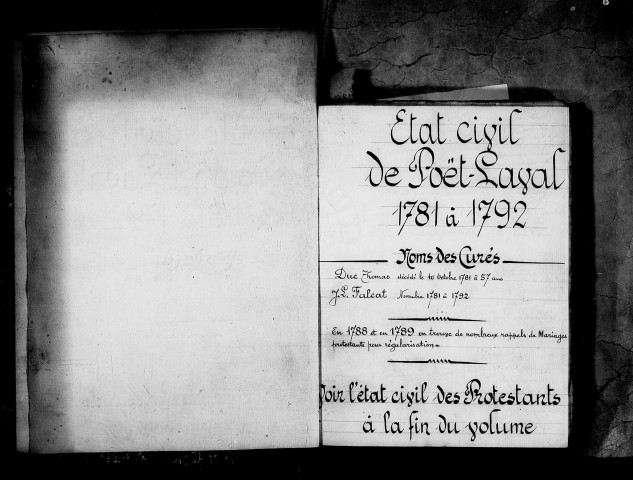 Etat civil
de Poët-Laval
1781 à 1792
Noms des Curés
Duc Thomas décédé le 10 Octobre 1781 à 57 ans
J.L. Falcat Novembre 1781 à 1792
En 1788 et en 1789 on trouve de nombreux rappels de Mariages
protestants pour régularisation.
Voir l'état civil des Protestants
à la fin du volume